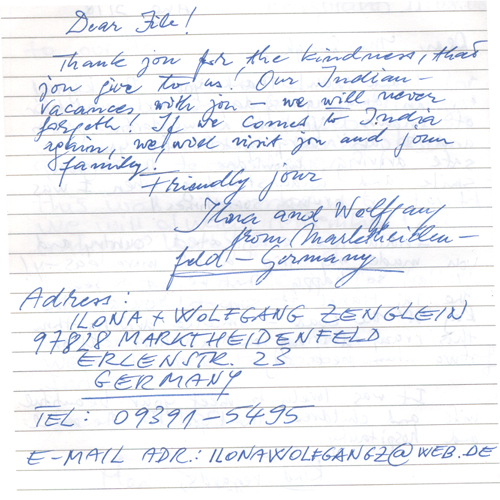 Dear File!
Thank you for the kindness, that
you give to us! Our Indian-
Vacances with you - we will never
forgeth! If we comes to India
again, we wil visit you and your
family!
Friendly your
Ilona and Wolfgang
from Marktheiden-
feld - Germany
Adress:
ILONA + WOLFGANG ZENGLEIN
97828 MARKTHEIDENFELD
ERLENSTR. 23
GERMANY
TEL: 09391-5495
E-MAIL ADR.: ILONAWOLFGANGZ@WEB.DE